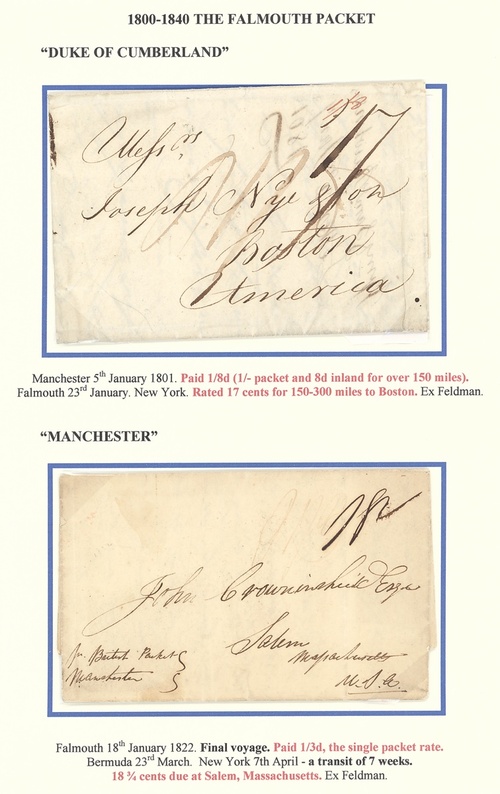 1800-1840 THE FALMOUTH PACKET
“DUKE OF CUMBERLAND”
1/8
17
Messrs
Joseph Nye & Son
Boston
America.
Manchester 5th January 1801. Paid 1/8d (1/- packet and 8d inland for over 150 miles).
Falmouth 23rd January. New York. Rated 17 cents for 150-300 miles to Boston. Ex Feldman.
“MANCHESTER”
John Crowninshield Esqr
Salem
Massachusetts
U.S.A.
pr. British Packet
Manchester
Falmouth 18th January 1822. Final voyage. Paid 1/3d, the single packet rate.
Bermuda 23rd March. New York 7th April - a transit of 7 weeks.
18 ¾ cents due at Salem, Massachusetts. Ex Feldman.